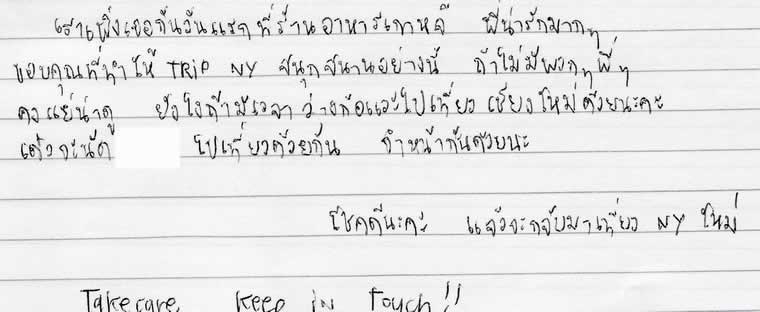 เราเพิ่งเจอกันวันแรกที่ร้านอาหารเกาหลี พี่น่ารักมากๆ
ขอบคุณที่ทำให้ TRIP NY สนุกสนานอย่างนี้ ถ้าไม่มีพวกๆพี่ๆ
คงแย่น่าดู ยังไงถ้ามีเวลาว่างก็แวะไปเที่ยวเชียงใหม่ด้วยนะคะ
เดี๋ยวจะนัด ไปเที่ยวด้วยกัน จำหน้ากันด้วยนะ
โชคดีนะคะ แล้วจะกลับมาเที่ยว NY ใหม่
Takecare, Keep in Touch!!